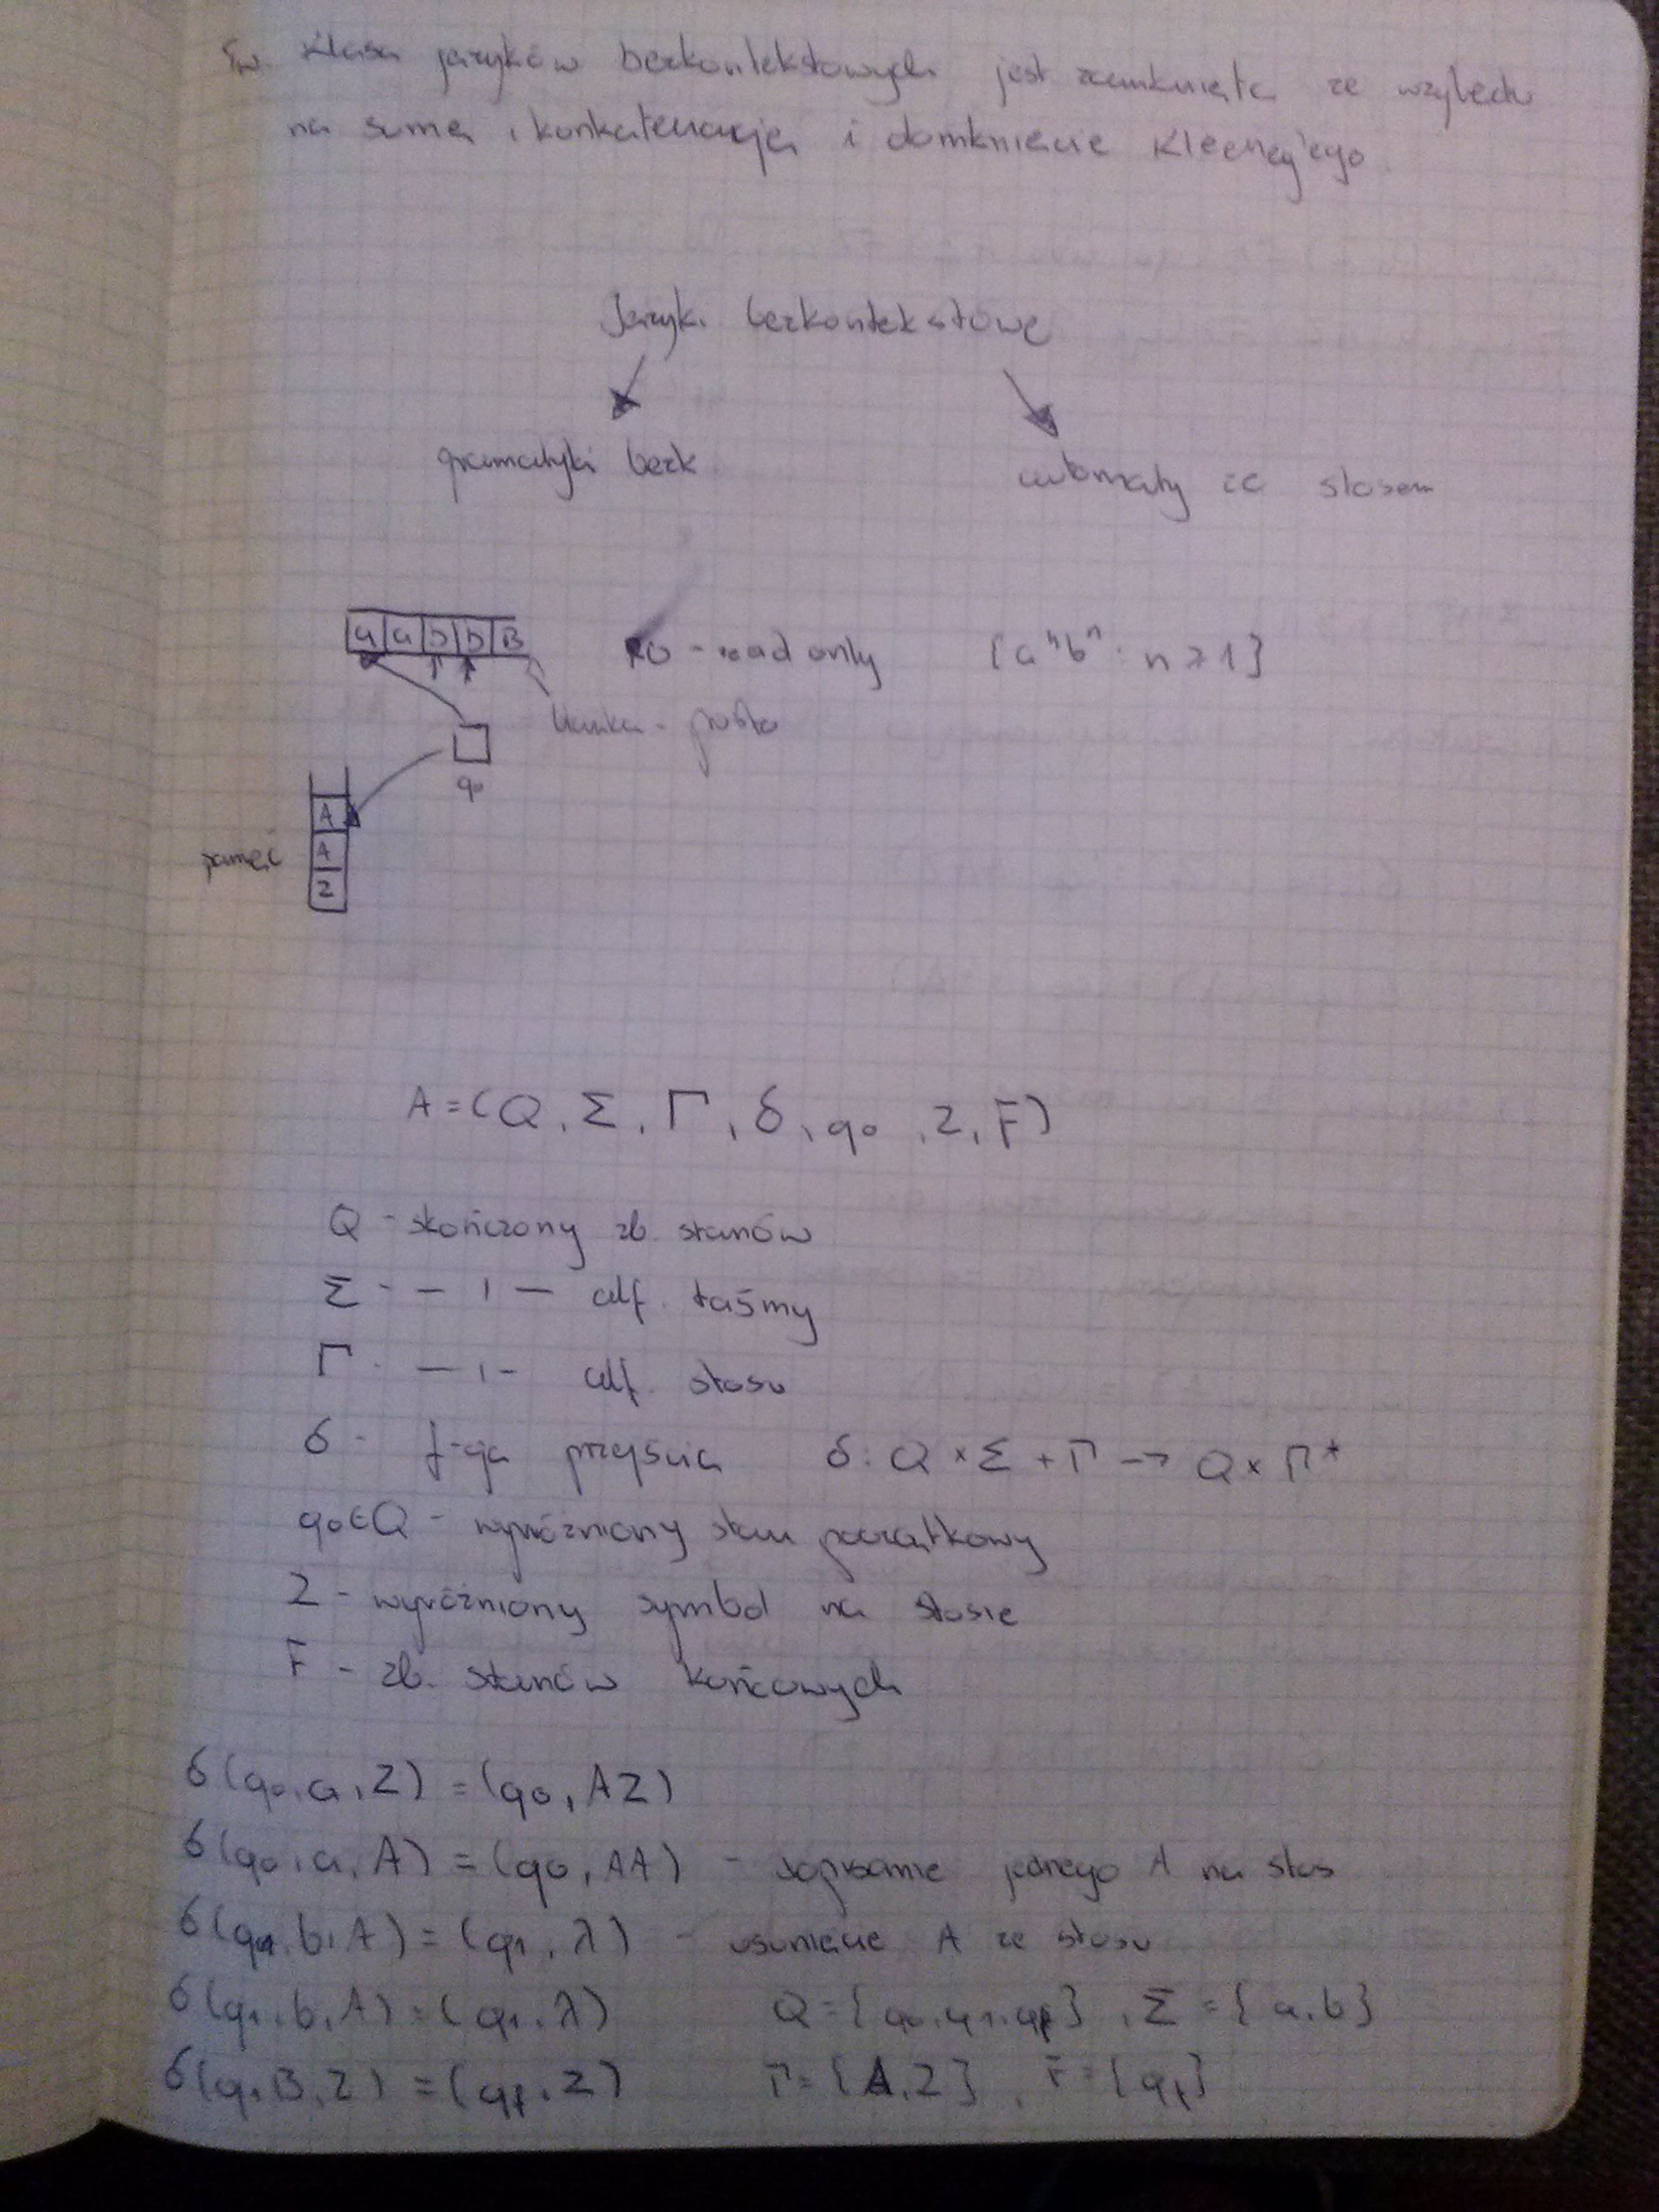 Tw. Klasa języków bezkontekstowych jest zamknięta ze względu
na sumę, konkatenację i domknięcie Kleeney'ego.
Języki bezkontekstowe
gramatyki bezk.
automaty ze stosem
a a b b B
RO - read only {aⁿbⁿ : n ≥ 1}
blanka - pusta
q₀
A
A
Z
pamięć
A = (Q, Σ, Γ, δ, q₀, Z, F)
Q - skończony zb. stanów
Σ - — ı — alf. taśmy
Γ - — ı - alf. stosu
δ - f-cja przejścia δ: Q × Σ + Γ → Q × Γ*
q₀ ∈ Q - wyróżniony stan początkowy
Z - wyróżniony symbol na stosie
F - zb. stanów końcowych
δ(q₀, a, Z) = (q₀, AZ)
δ(q₀, a, A) = (q₀, AA) - dopisanie jednego A na stos
b, A) = (q₁, λ) - usunięcie A ze stosu
δ(q₁, b, A) = (q₁, λ) Q = {q₀, q₁, qf}, Σ = {a, b}
B, Z) = (qf, Z) Γ = {A, Z}, F = {qf}